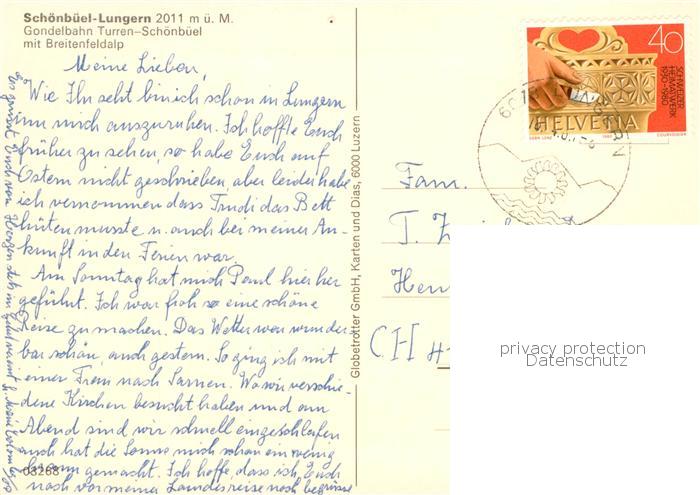 Schönbüel-Lungern 2011 m ü. M.
Gondelbahn Turren–Schönbüel
mit Breitenfeldalp
Meine Lieben,
Wie Ihr seht bin ich schon in Lungern
um mich auszuruhen. Ich hoffte Euch
früher zu sehen, so habe Euch auf
Ostern nicht geschrieben, aber leider habe
ich vernommen dass Trudi das Bett
hüten musste u. auch bei meiner An-
kunft in den Ferien war.
Am Sonntag hat mich Paul hierher
geführt. Ich war froh so eine schöne
Reise zu machen. Das Wetter war wunder-
bar schön, auch gestern. So ging ich mit
einer Frau nach Sarnen. Wo wir verschie-
dene Kirchen besucht haben und am
Abend sind wir schnell eingeschlafen
auch hat die Sonne mich schon ein wenig
braun gemacht. Ich hoffe, dass ich Euch
noch vor meiner Landesreise noch begrüsse
Es grüsst Euch von Herzen
03268
Globetrotter GmbH, Karten und Dias, 6000 Luzern
40
SCHWEIZER
HEIMATWERK
1930-1980
HELVETIA
COURVOISIER
Fam.
T.
CH
privacy protection
Datenschutz